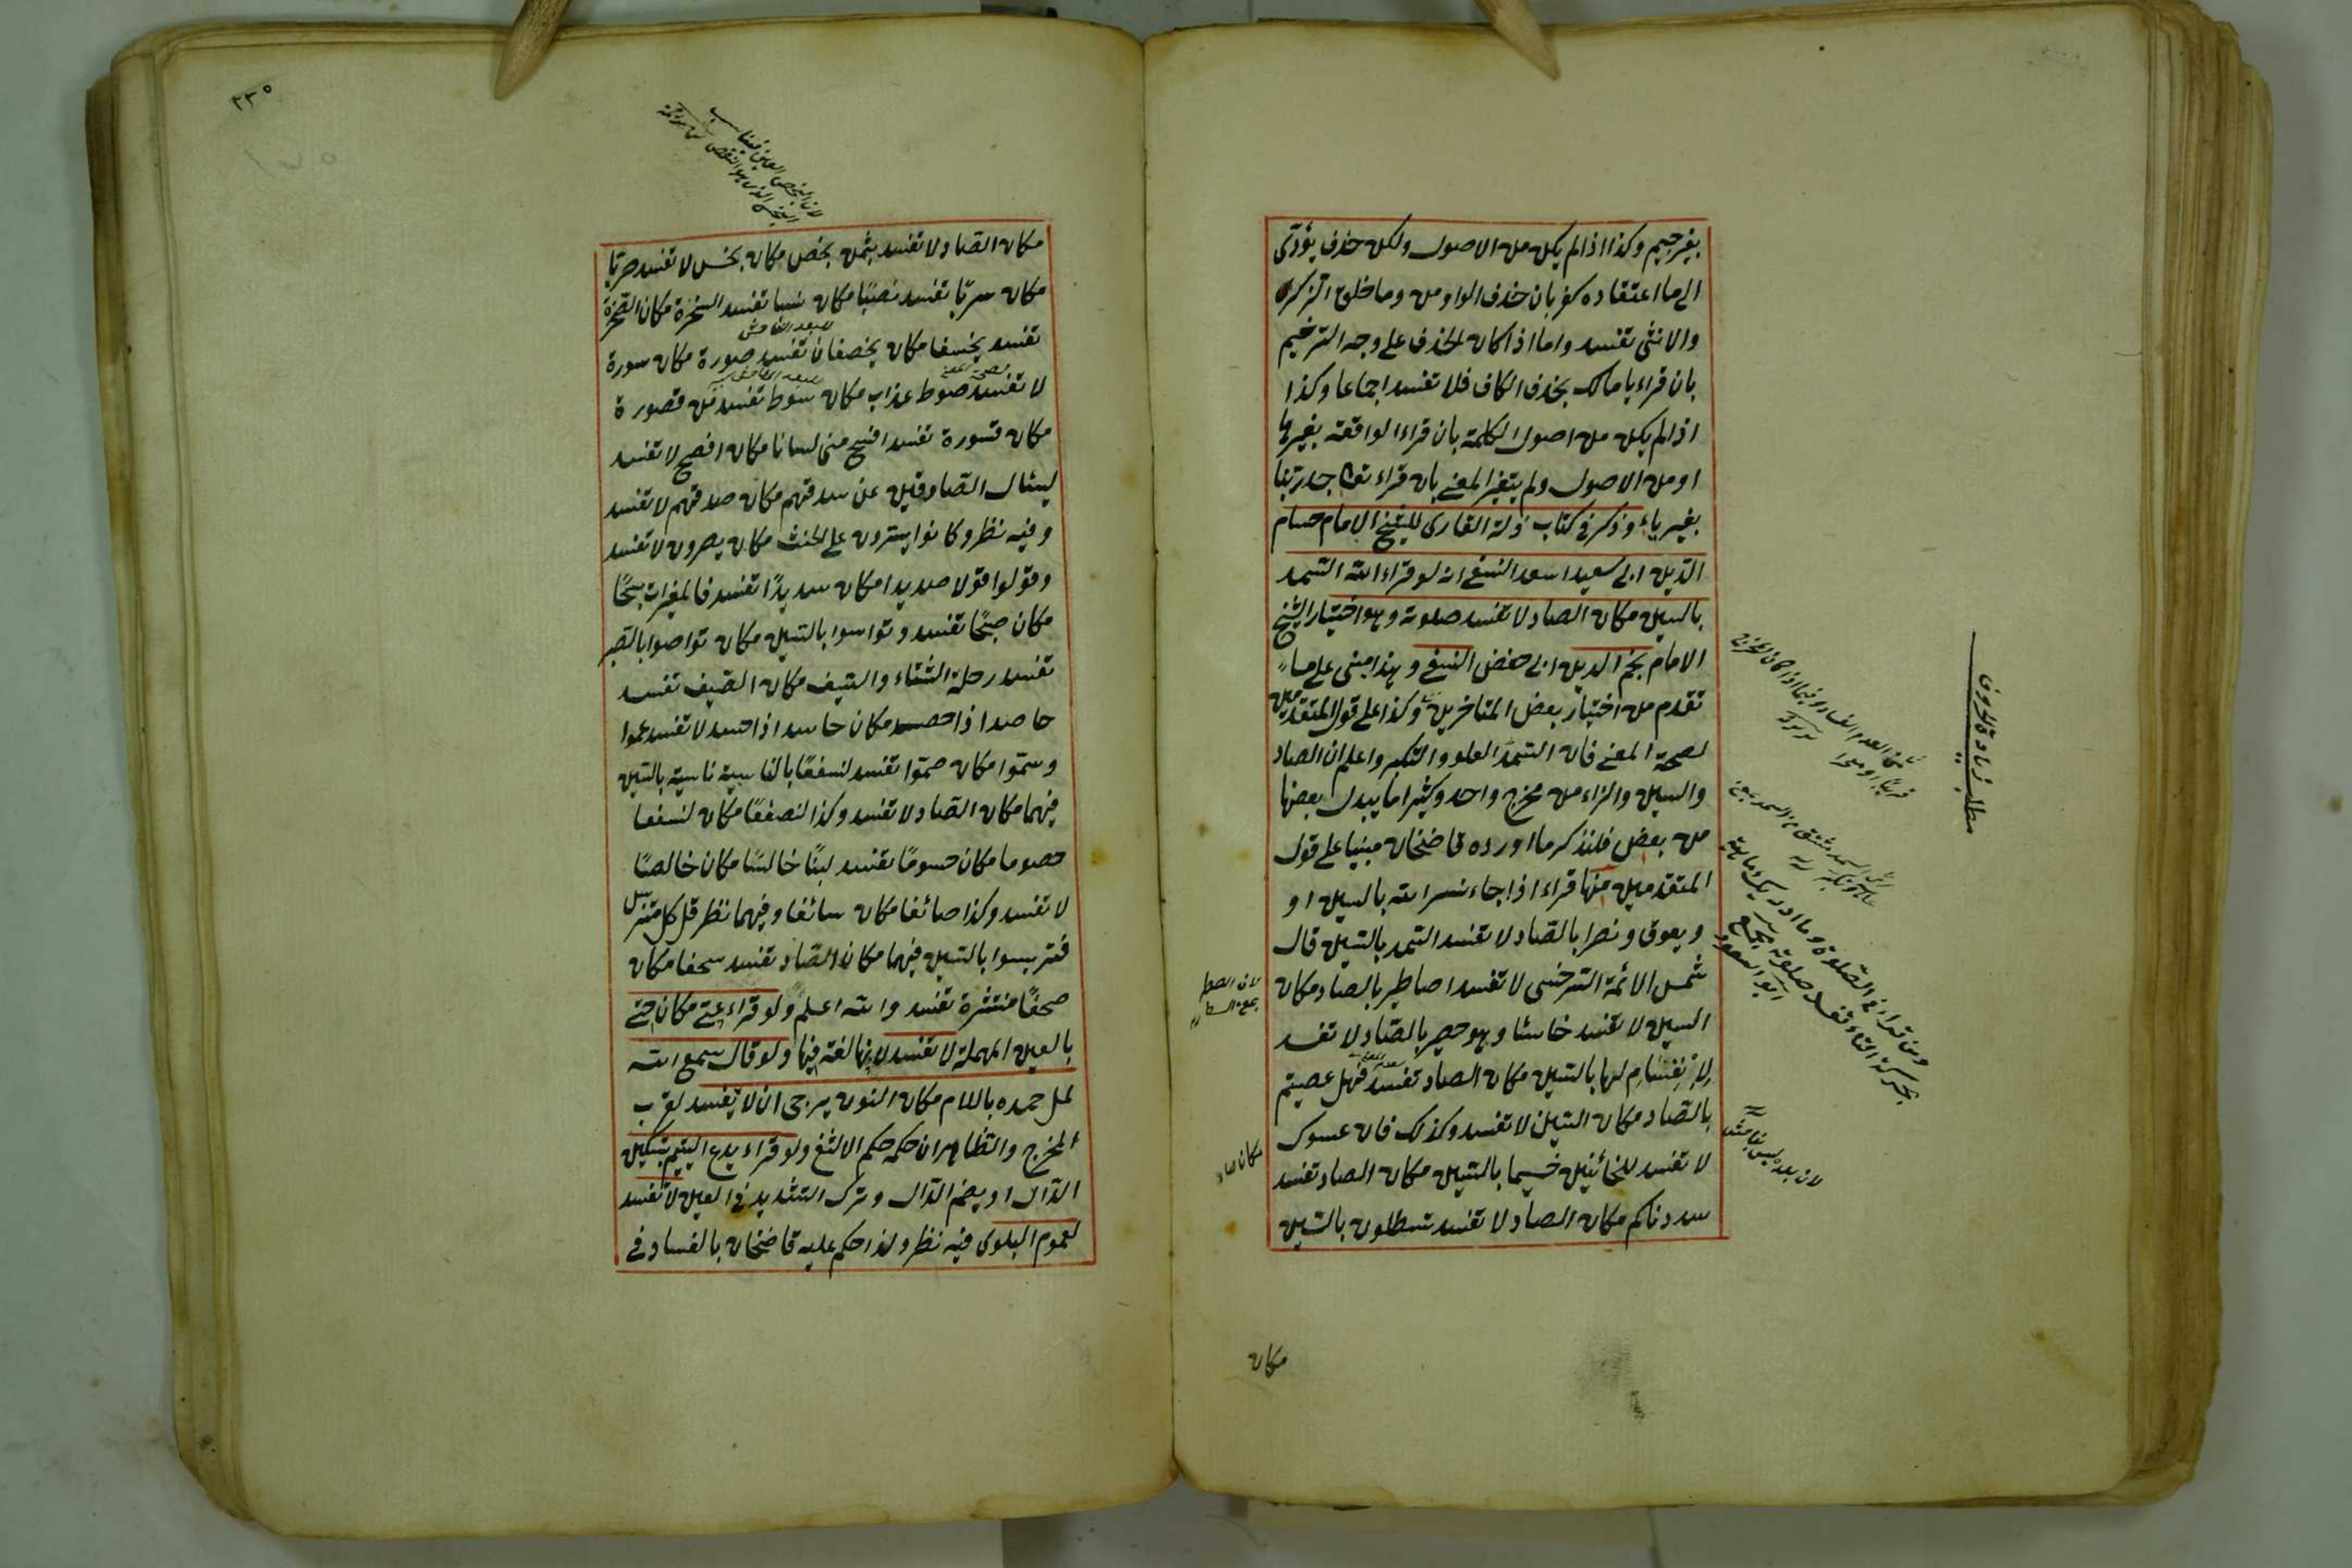 بغير جيم وكذا اذا لم يكن من الاصول ولكن حذف يؤدى
الى ما اعتقاده كفر بان حذف الواو من وما خلق الذكر
والانثى تفسد واما اذا كان الحذف على وجه الترخيم
بان قراء يا مالك بحذف الكاف فلا تفسد اجماعا وكذا
اذا لم يكن من اصول الكلمة بان قراء الواقعة بغير ها
او من الاصول ولم يتغير المعنى بان قراء تعا جد ربنا
بغير ياء وذكر فى كتاب زلة القارى للشيخ الامام حسام
الدين ابى سعيد اسعد النسفى انه لو قراء الله السمد
بالسين مكان الصاد لا تفسد صلوته وهو اختيار الشيخ
الامام نجم الدين ابى حفص النسفى وهذا مبنى على ما
تقدم من اختيار بعض المتاخرين وكذا على قول المتقدمين
لصحة المعنى فان السمد العلو والتكبر واعلم ان الصاد
والسين والزاء من مخرج واحد وكثيرا ما يبدل بعضها
من بعض فلنذكر ما اورده قاضخان مبنيا على قول
المتقدمين منها قراء اذا جاء نسر الله بالسين او
ويعوق ونصرا بالصاد لا تفسد السمد بالسين قال
شمس الائمة السرخسى لا تفسد اصاطير بالصاد مكان
السين لا تفسد خاسئا وهو حصير بالصاد لا تفسد
لانفسام لها بالسين مكان الصاد تفسد فهل عصيتم
بالصاد مكان السين لا تفسد وكذلك فان عسوك
لا تفسد للخائنين خسيما بالسين مكان الصاد تفسد
سددناكم مكان الصاد لا تفسد تسطلون بالسين
مكان
مطلب زيادة الحروف
لان بعده ليس بفاحش
مكان صاد
مكان الصاد لا تفسد بثمن بخص مكان بخس لا تفسد صربا
مكان سربا تفسد نصبا مكان نسبا تفسد السخرة مكان الصخرة
تفسد يخسفا مكان يخصفان تفسد صورة مكان سورة
لا تفسد صوط عذاب مكان سوط تفسد من قصورة
مكان قسورة تفسد افسح منى لسانا مكان افصح لا تفسد
ليسئال الصادقين عن سدقهم مكان صدقهم لا تفسد
وفيه نظر وكانوا يسرون على الحنث مكان يصرون لا تفسد
وقولوا قولا صديدا مكان سديدا تفسد فالمغيرات سبحا
مكان صبحا تفسد وتواسوا بالسين مكان تواصوا بالصبر
تفسد رحلة الشتاء والسيف مكان الصيف تفسد
حاصدا اذا حصد مكان حاسدا اذا حسد لا تفسد عموا
وسموا مكان صموا تفسد لنسفعا بالناسية ناسية بالسين
فيهما مكان الصاد لا تفسد وكذا لنصفعا مكان لنسفعا
حصوما مكان حسوما تفسد لبنا خالسا مكان خالصا
لا تفسد وكذا صائغا مكان سائغا وفيهما نظر قل كل متربس
فتربسوا بالسين فيهما مكان الصاد تفسد سحفا مكان
صحفا منتشرة تفسد والله اعلم ولو قراء عتى مكان حتى
بالعين المهملة لا تفسد لانها لغة فيها ولو قال سمع الله
لمل حمده باللام مكان النون يرجى ان لا تفسد لقرب
المخرج والظاهر ان حكمه حكم الالثغ ولو قراء يدع اليتيم بتسكين
الدال او بضم الدال وترك التشديد فى العين لا تفسد
لعموم البلوى فيه نظر ولذا حكم عليه قاضخان بالفساد فى